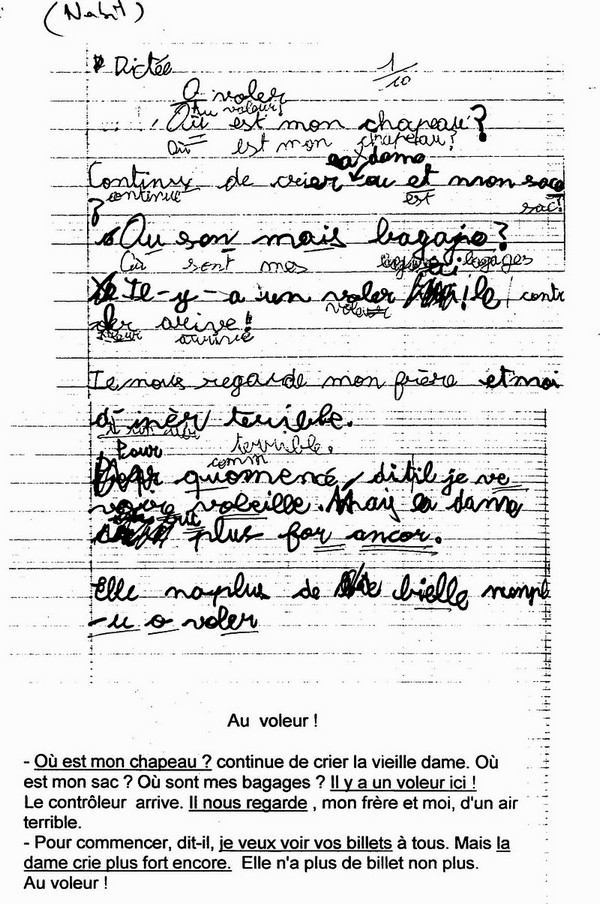 (Nabil)
Dictée
1/10
O voler
Au voleur
Où est mon chapeau?
Où est mon chapeau?
la dame
Continux de crier ou et mon saco
continue est sac?
?
Ou son mais bagaje?
Où sont mes bagages
Il-y-a un voler ! le contr
voleur
ler arive!
arrive
Ie nous regarde mon frère et moi
d inèr terrible.
terrible.
Pour
comm
quomencé, ditil je ve
voleille. Mais la dame
plus for ancor.
Elle naplus de bielle nonpl
-u o voler
Au voleur !
- Où est mon chapeau ? continue de crier la vieille dame. Où
est mon sac ? Où sont mes bagages ? Il y a un voleur ici !
Le contrôleur arrive. Il nous regarde , mon frère et moi, d'un air
terrible.
- Pour commencer, dit-il, je veux voir vos billets à tous. Mais la
dame crie plus fort encore. Elle n'a plus de billet non plus.
Au voleur !